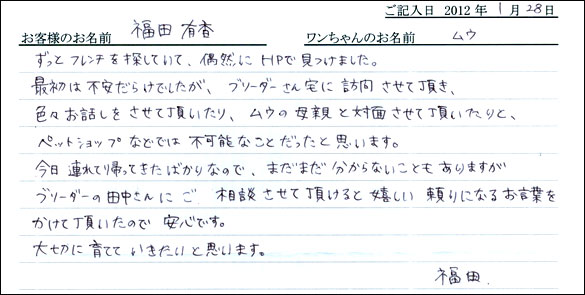 ご記入日 2012 年 1 月 28 日
お客様のお名前 福田 有香 ワンちゃんのお名前 ムウ
ずっとフレンチを探していて、偶然にHPで見つけました。
最初は不安だらけでしたが、ブリーダーさん宅に訪問させて頂き、
色々お話しをさせて頂いたり、ムウの母親と対面させて頂いたりと、
ペットショップなどでは不可能なことだったと思います。
今日連れて帰ってきたばかりなので、まだまだ分からないこともありますが
ブリーダーの田中さんにご相談させて頂けると嬉しい頼りになるお言葉を
かけて頂いたので安心です。
大切に育てていきたいと思います。
福田.